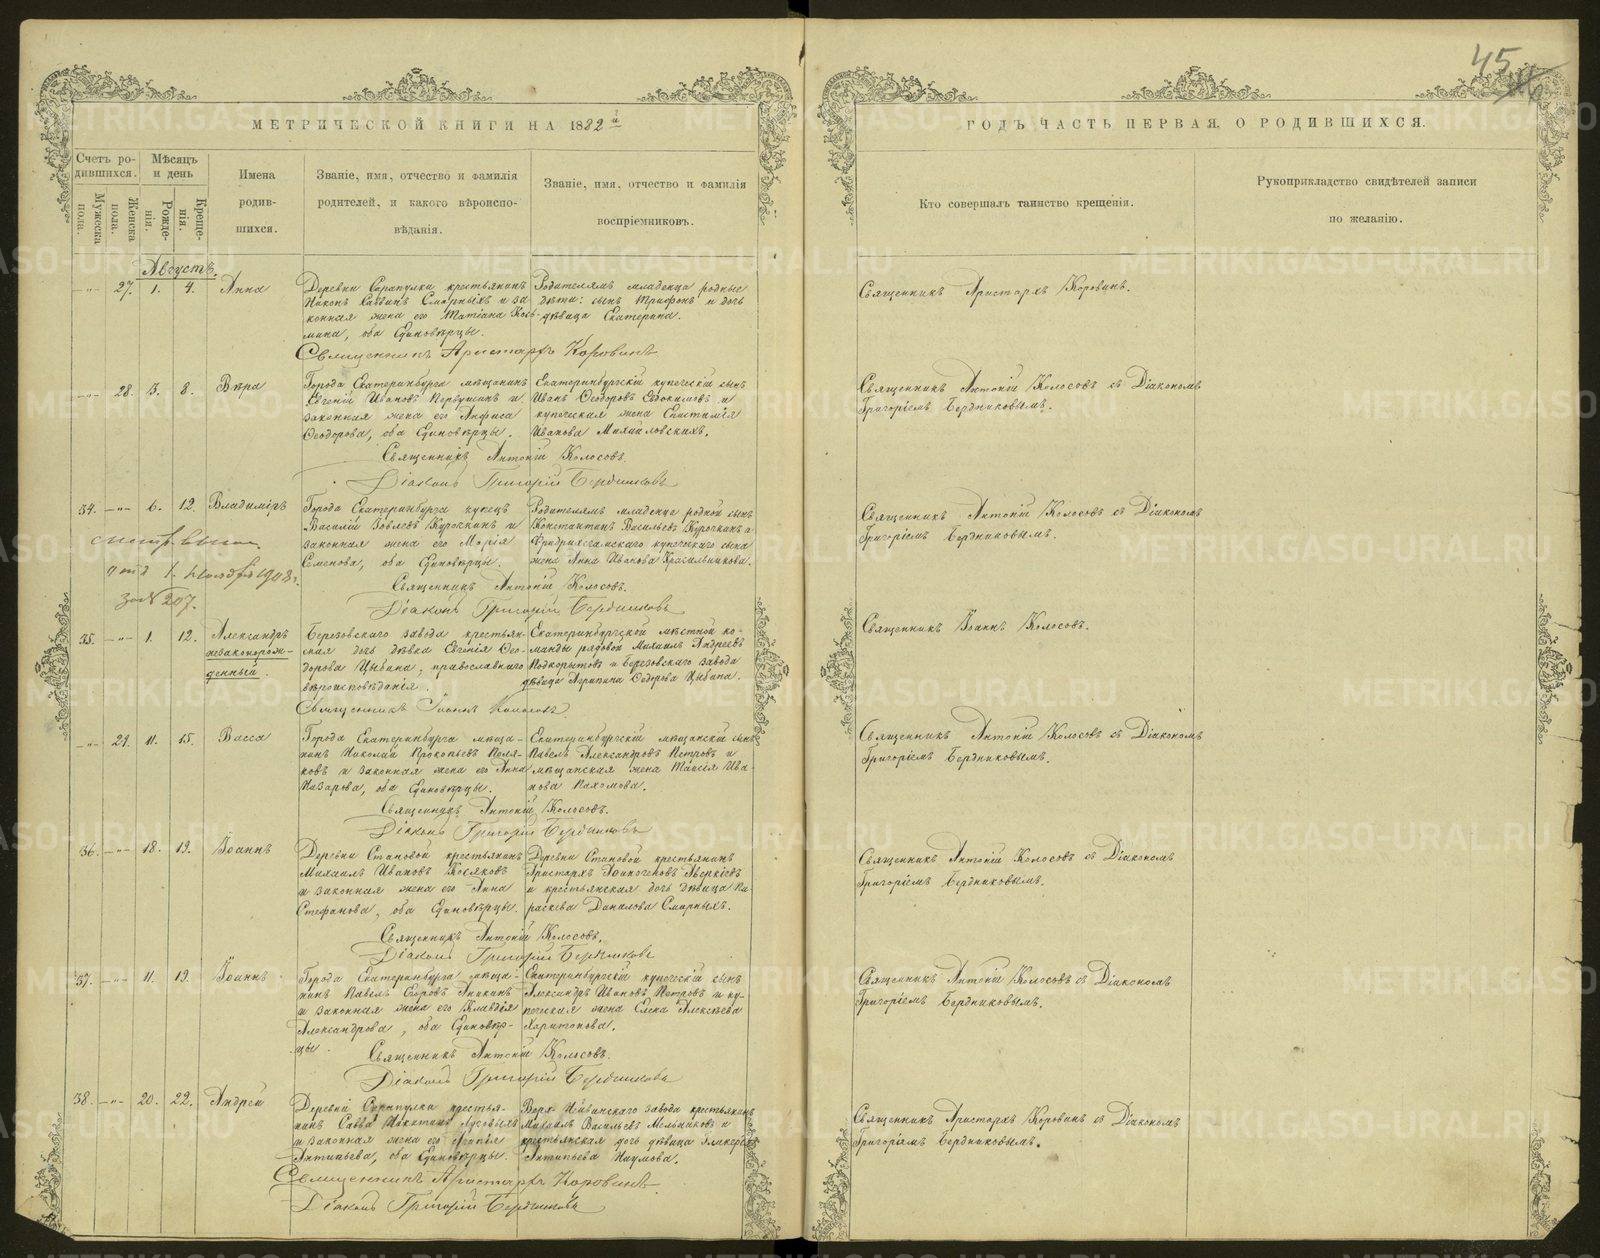 45
МЕТРИЧЕСКОЙ КНИГИ НА 1882й
ГОДЪ ЧАСТЬ ПЕРВАЯ, О РОДИВШИХСЯ.
Счетъ ро-
дившихся.
Мужеска пола.
Женска пола.
Мѣсяцъ
и день
Рожде-
нія.
Креще-
нія.
Имена
родив-
шихся.
Званіе, имя, отчество и фамилія
родителей, и какого вѣроиспо-
вѣданія.
Званіе, имя, отчество и фамилія
воспріемниковъ.
Кто совершалъ таинство крещенія.
Рукоприкладство свидѣтелей записи
по желанію.
Августъ.
-"- 27. 1. 4. Анна
Деревни Сарапулки крестьянинъ
Савинъ Смирныхъ и за
конная жена его Татіана Кось-
мина, оба Единовѣрцы.
Родителямъ младенца родные
дѣти: сынъ Трифонъ и дочь
дѣвица Екатерина.
Священникъ Аристархъ Коровинъ
Священникъ Аристархъ Коровинъ.
-"- 28. 3. 8. Вѣра
Города Екатеринбурга мѣщанинъ
Евгеній Ивановъ Первушинъ и
законная жена его Анфиса
Ѳеодорова, оба Единовѣрцы.
Екатеринбургскій купеческій сынъ
Иванъ Ѳеодоровъ Евдокимовъ и
купеческая жена Епистимія
Иванова Михайловскихъ.
Священникъ Антоній Колосовъ.
Діаконъ Григорій Бердниковъ
Священникъ Антоній Колосовъ съ Діакономъ
Григоріемъ Бердниковымъ.
34. -"- 6. 12. Владиміръ
Города Екатеринбурга купецъ
Василій Курочкинъ и
законная жена его Марія
Семенова, оба Единовѣрцы.
Родителямъ младенца родной сынъ
Константинъ Васильевъ Курочкинъ и
Фридрихсгамскаго купеческаго сына
жена Анна Иванова Красильникова.
Священникъ Антоній Колосовъ.
Діаконъ Григорій Бердниковъ
1908г.
за № 207.
Священникъ Антоній Колосовъ съ Діакономъ
Григоріемъ Бердниковымъ.
35. -"- 1. 12. Александръ
незаконорож-
денный.
Березовскаго завода крестьян-
ская дочь дѣвка Евгенія Ѳео-
дорова Цывина, православнаго
вѣроисповѣданія.
Екатеринбургской мѣстной ко-
манды рядовой Михаилъ Андреевъ
Подкорытовъ и Березовскаго завода
дѣвица Агрипина Ѳедорова Цывина.
Священникъ Іоаннъ Колосовъ.
Священникъ Іоаннъ Колосовъ.
-"- 29. 11. 15. Васса
Города Екатеринбурга мѣща-
нинъ Николай Прокопьевъ Поля-
ковъ и законная жена его Анна
Назарова, оба Единовѣрцы.
Екатеринбургскій мѣщанскій сынъ
Павелъ Александровъ Петровъ и
мѣщанская жена Таисія Ива-
нова Пахомова.
Священникъ Антоній Колосовъ.
Діаконъ Григорій Бердниковъ
Священникъ Антоній Колосовъ съ Діакономъ
Григоріемъ Бердниковымъ.
36. -"- 18. 19. Іоаннъ
Деревни Становой крестьянинъ
Михаилъ Ивановъ Косяковъ
и законная жена его Анна
Стефанова, оба Единовѣрцы.
Деревни Становой крестьянинъ
Аристархъ Аверкіевъ
и крестьянская дочь дѣвица Па-
раскева Данилова Смирныхъ.
Священникъ Антоній Колосовъ.
Діаконъ Григорій Бердниковъ
Священникъ Антоній Колосовъ съ Діакономъ
Григоріемъ Бердниковымъ.
37. -"- 11. 19. Іоаннъ
Города Екатеринбурга мѣща-
нинъ Павелъ Егоровъ Аникинъ
и законная жена его Клавдія
Александрова, оба Единовѣр-
цы.
Екатеринбургскій купеческій сынъ
Александръ Ивановъ Петровъ и ку-
печеская жена Елена Алексѣева
Харитонова.
Священникъ Антоній Колосовъ.
Діаконъ Григорій Бердниковъ
Священникъ Антоній Колосовъ съ Діакономъ
Григоріемъ Бердниковымъ.
38. -"- 20. 22. Андрей
Деревни Сарапулки крестья-
нинъ Савва Никитинъ
и законная жена его
Антипьева, оба Единовѣрцы.
Верх-Нейвинскаго завода крестьянинъ
Михаилъ Васильевъ Мельниковъ и
крестьянская дочь дѣвица Гликерія
Антипьева Наумова.
Священникъ Аристархъ Коровинъ.
Діаконъ Григорій Бердниковъ
Священникъ Аристархъ Коровинъ съ Діакономъ
Григоріемъ Бердниковымъ.
METRIKI.GASO-URAL.RU